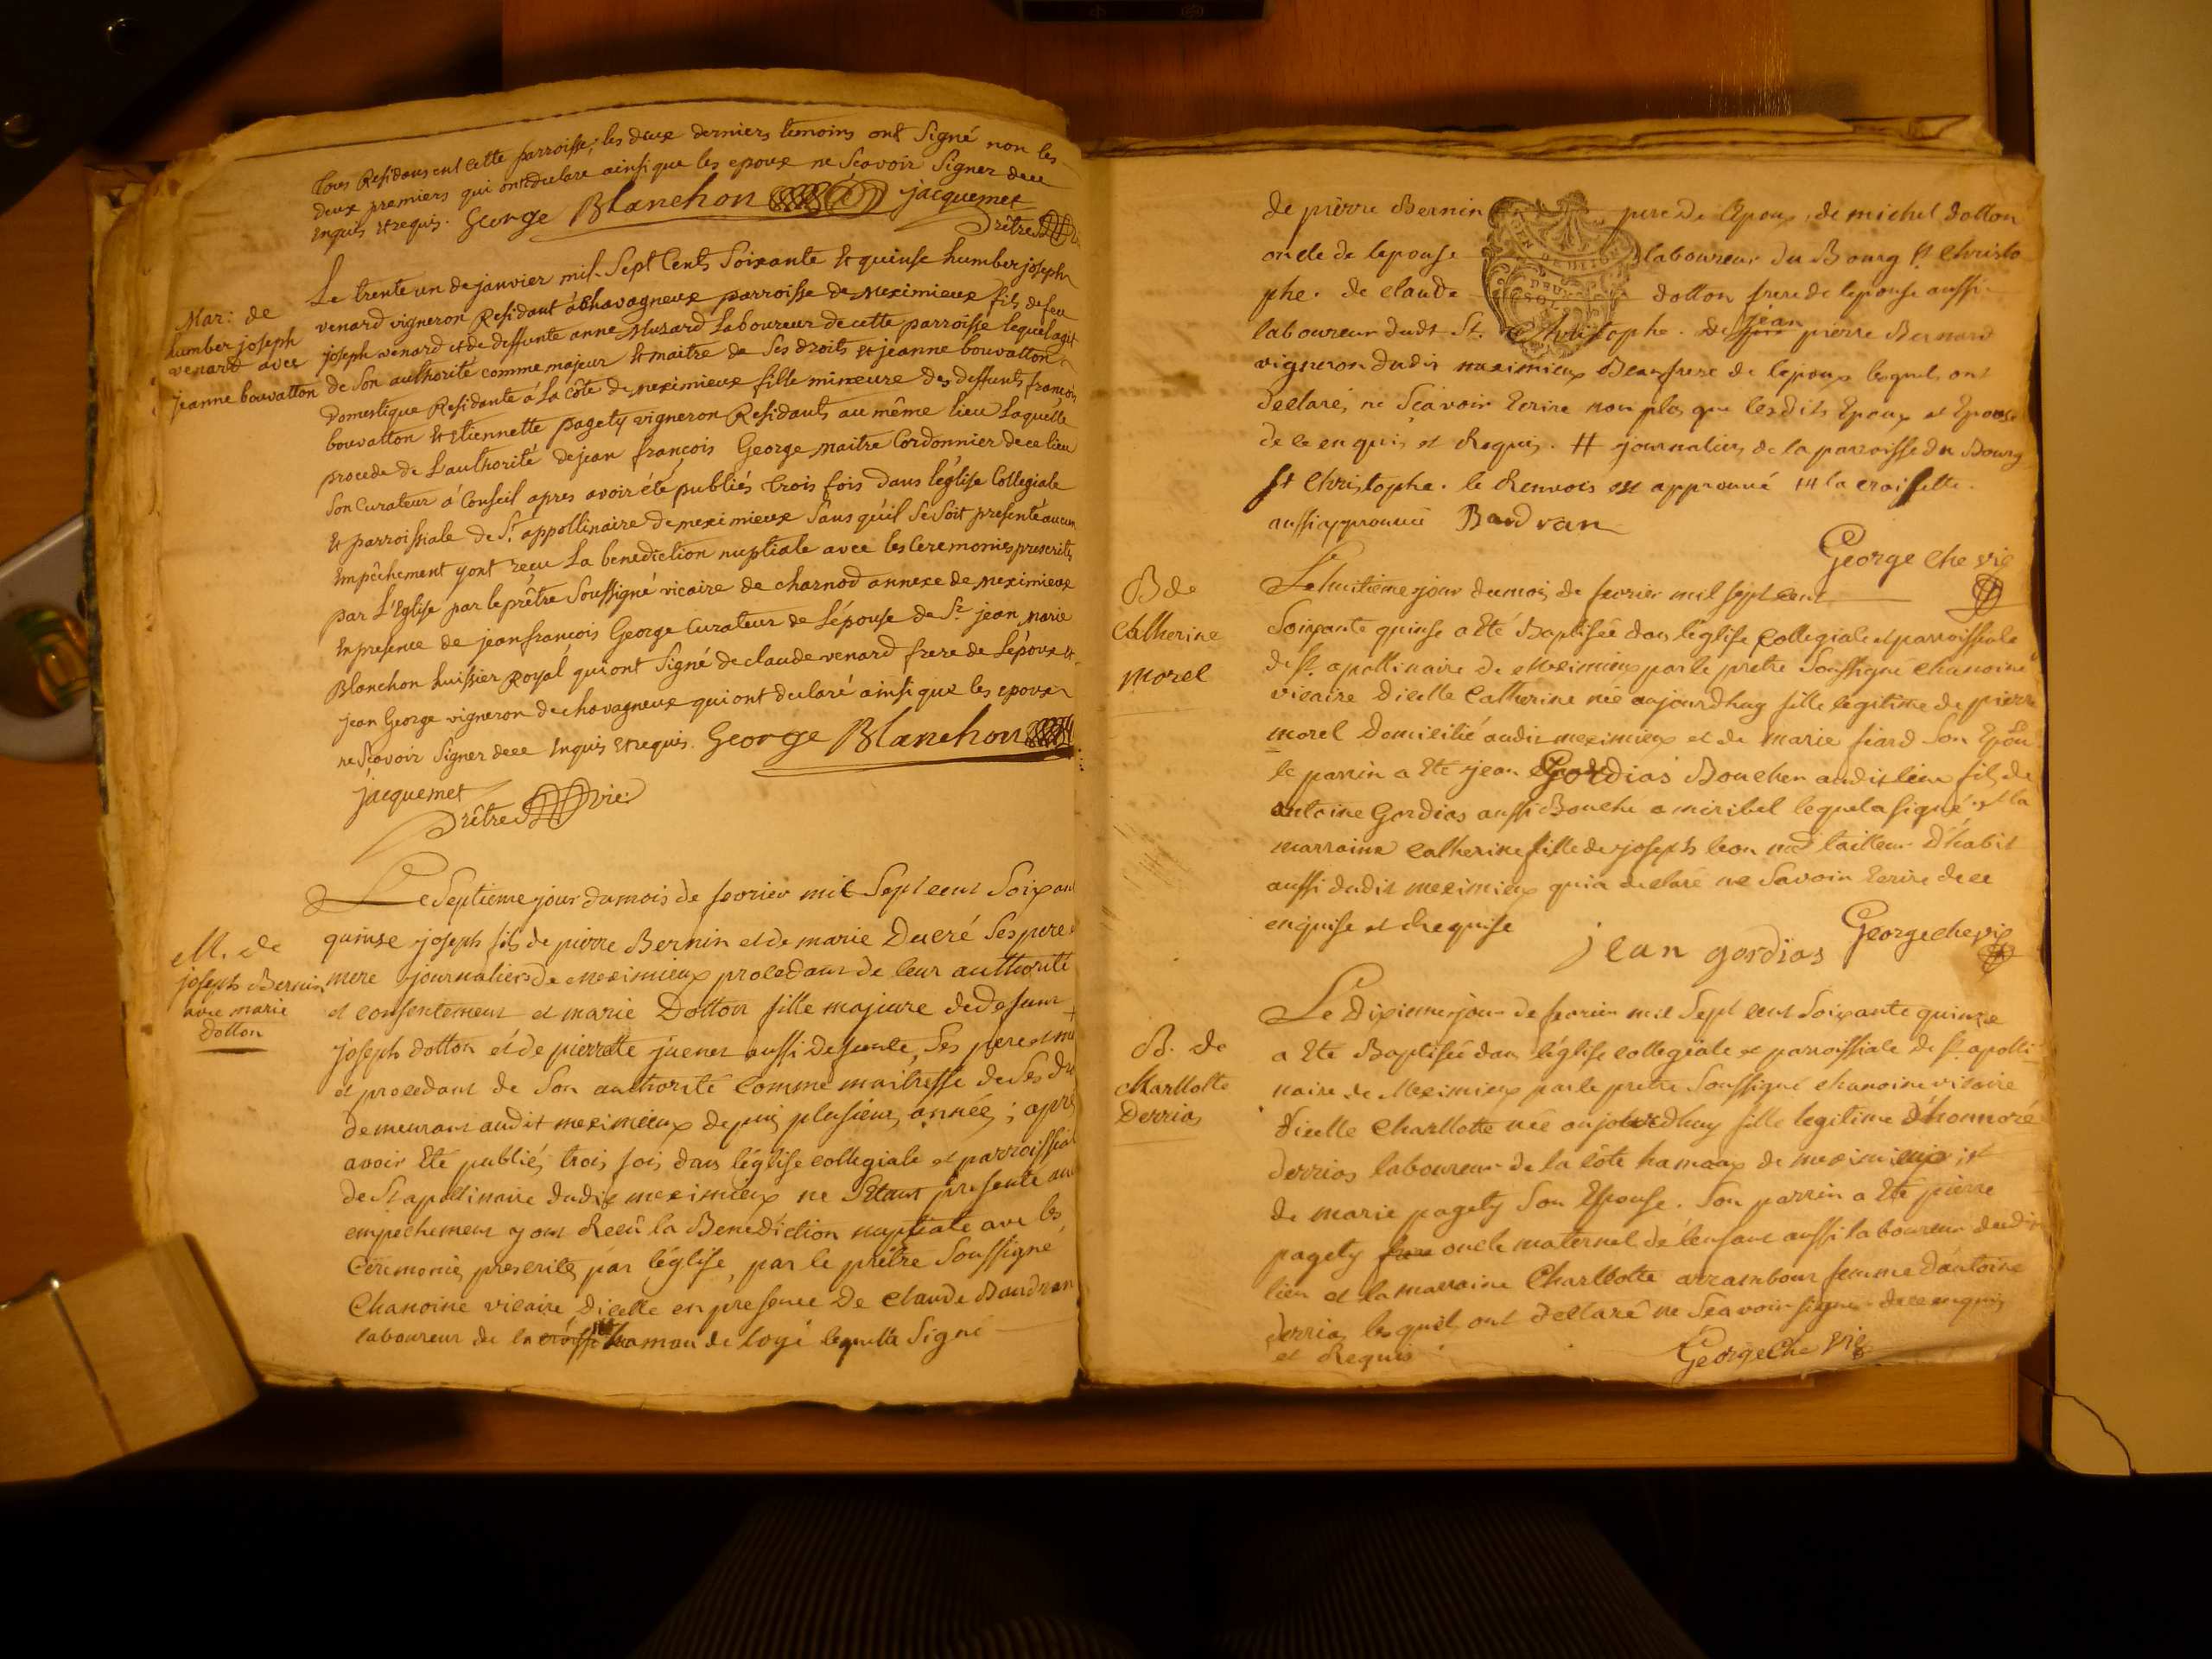 tous Residans en cette parroisse; les deux derniers temoins ont Signé non les
deux premiers qui ont declare ainsi que les epoux ne Scavoir Signer dece
enquis et requis. George Blanchon jacquemet
Prêtre
Mar: de
humber joseph
venard avec
jeanne bouvatton
Le trente un de janvier mil Sept Cents Soixante et quinse humber joseph
venard vigneron Residant à Chavagneux parroisse de meximieux fils de feu
joseph venard et de deffunte anne Musard Laboureur de cette parroisse lequel agit
de Son authorité comme majeur et maitre de Ses droits et jeanne bouvatton
Domestique Residante à La Côte de meximieux fille mineure des deffunts françois
bouvatton et etiennette pagety vigneron Residants au même lieu Laquelle
procede de L'authorité de jean françois George maitre Cordonnier de ce lieu
Son Curateur à Conseil apres avoir été publiés trois fois dans l'église Collegiale
et parroissiale de St. appollinaire de meximieux Sans qu'il Se Soit presenté aucun
Empêchement y ont recu La benediction nuptiale avec les Ceremonies prescrites
par L'Eglise par le prêtre Soussigné vicaire de charnod annexe de meximieux
En presence de jean françois George Curateur de L'épouse de Sr. jean marie
Blanchon huissier Royal qui ont Signé de claude venard frere de L'époux et
jean George vigneron de chavagneux qui ont declaré ainsi que les epoux
ne Scavoir Signer dece enquis et requis. George Blanchon
jacquemet
Prêtre vic:
M. de
joseph Bernin
avec marie
Dotton
Le Septieme jour du mois de fevrier mil Sept cent Soixant
quinse joseph fils de pierre Bernin et de marie Ducré Ses pere
mere journaliers de meximieux procedant de leur authorité
et consentement et marie Dotton fille majeure de defunt
joseph dotton et de pierrette juenet aussi defunte, Ses pere et me
et procedant de Son authorité Comme maitresse de Ses dr
demeurant audit meximieux depuis plusieurs années; apre
avoir Eté publiés trois fois dans l'église collegiale et parroissial
de St apollinaire dudit meximieux ne S'etant presenté au
empechement y ont Reçû la Benediction nuptiale avec les
Ceremonies prescrites par l'église, par le prêtre Soussigné
Chanoine vicaire dicelle en presence De claude Baudran
laboureur de la hamau de loye lequel a Signé
de pierre Bernin pere De l'Epoux, de michel dotton
oncle de lepouse laboureur du Bourg St Christo
phe. de claude dotton frere de lepouse aussi
laboureur dudt St. Christophe. de jean pierre Bernard
vigneron dudit meximieux Beaufrere de lepoux lesquels ont
declaré ne Sçavoir Ecrire non plus que lesdits Epoux et Epouse
de ce enquis et Requis. # journaliers de la parroisse du Bourg
St Christophe. le Renvois est approuvé la croisette
aussi approuvée Baudran
George Che vic
B de
Catherine
morel
Le huitieme jour du mois de fevrier mil sept cent
Soixante quinse a Eté Baptisée dans l'église Collegiale et parroissiale
de St. apollinaire de meximieux par le pretre Soussigné chanoine
vicaire Dicelle Catherine née aujourdhuy fille legitime de pierre
morel Domicilié audit meximieux et de marie fiard Son Epou
le parrin a Eté jean Gordias Boucher audit lieu fils de
antoine Gordias aussi Bouche a miribel lequel a signé et la
marraine Catherine fille de joseph leon md tailleur d'habit
aussi dudit meximieux qui a declaré ne Savoir Ecrire de ce
enquise et Requise
jean gordias George che vic
B. de
Charllotte
Derrias
Le Dixieme jour de fevrier mil Sept cent Soixante quinze
a Eté Baptisée dans l'église collegiale et parroissiale de St apolli
naire de Meximieux par le pretre Soussigné chanoine vicaire
dicelle Charllotte née aujourdhuy fille legitime d'honnoré
derrias laboureur de la Côte hamaux de meximieux; et
de marie pagety Son Epouse. Son parrin a Eté pierre
pagety oncle maternel de l'enfant aussi laboureur dudit
lieu et la maraine Charllotte arrambour femme d'antoine
derrias lesquels ont declaré ne Sçavoir signer de ce enquis
et Requis
George Che vic